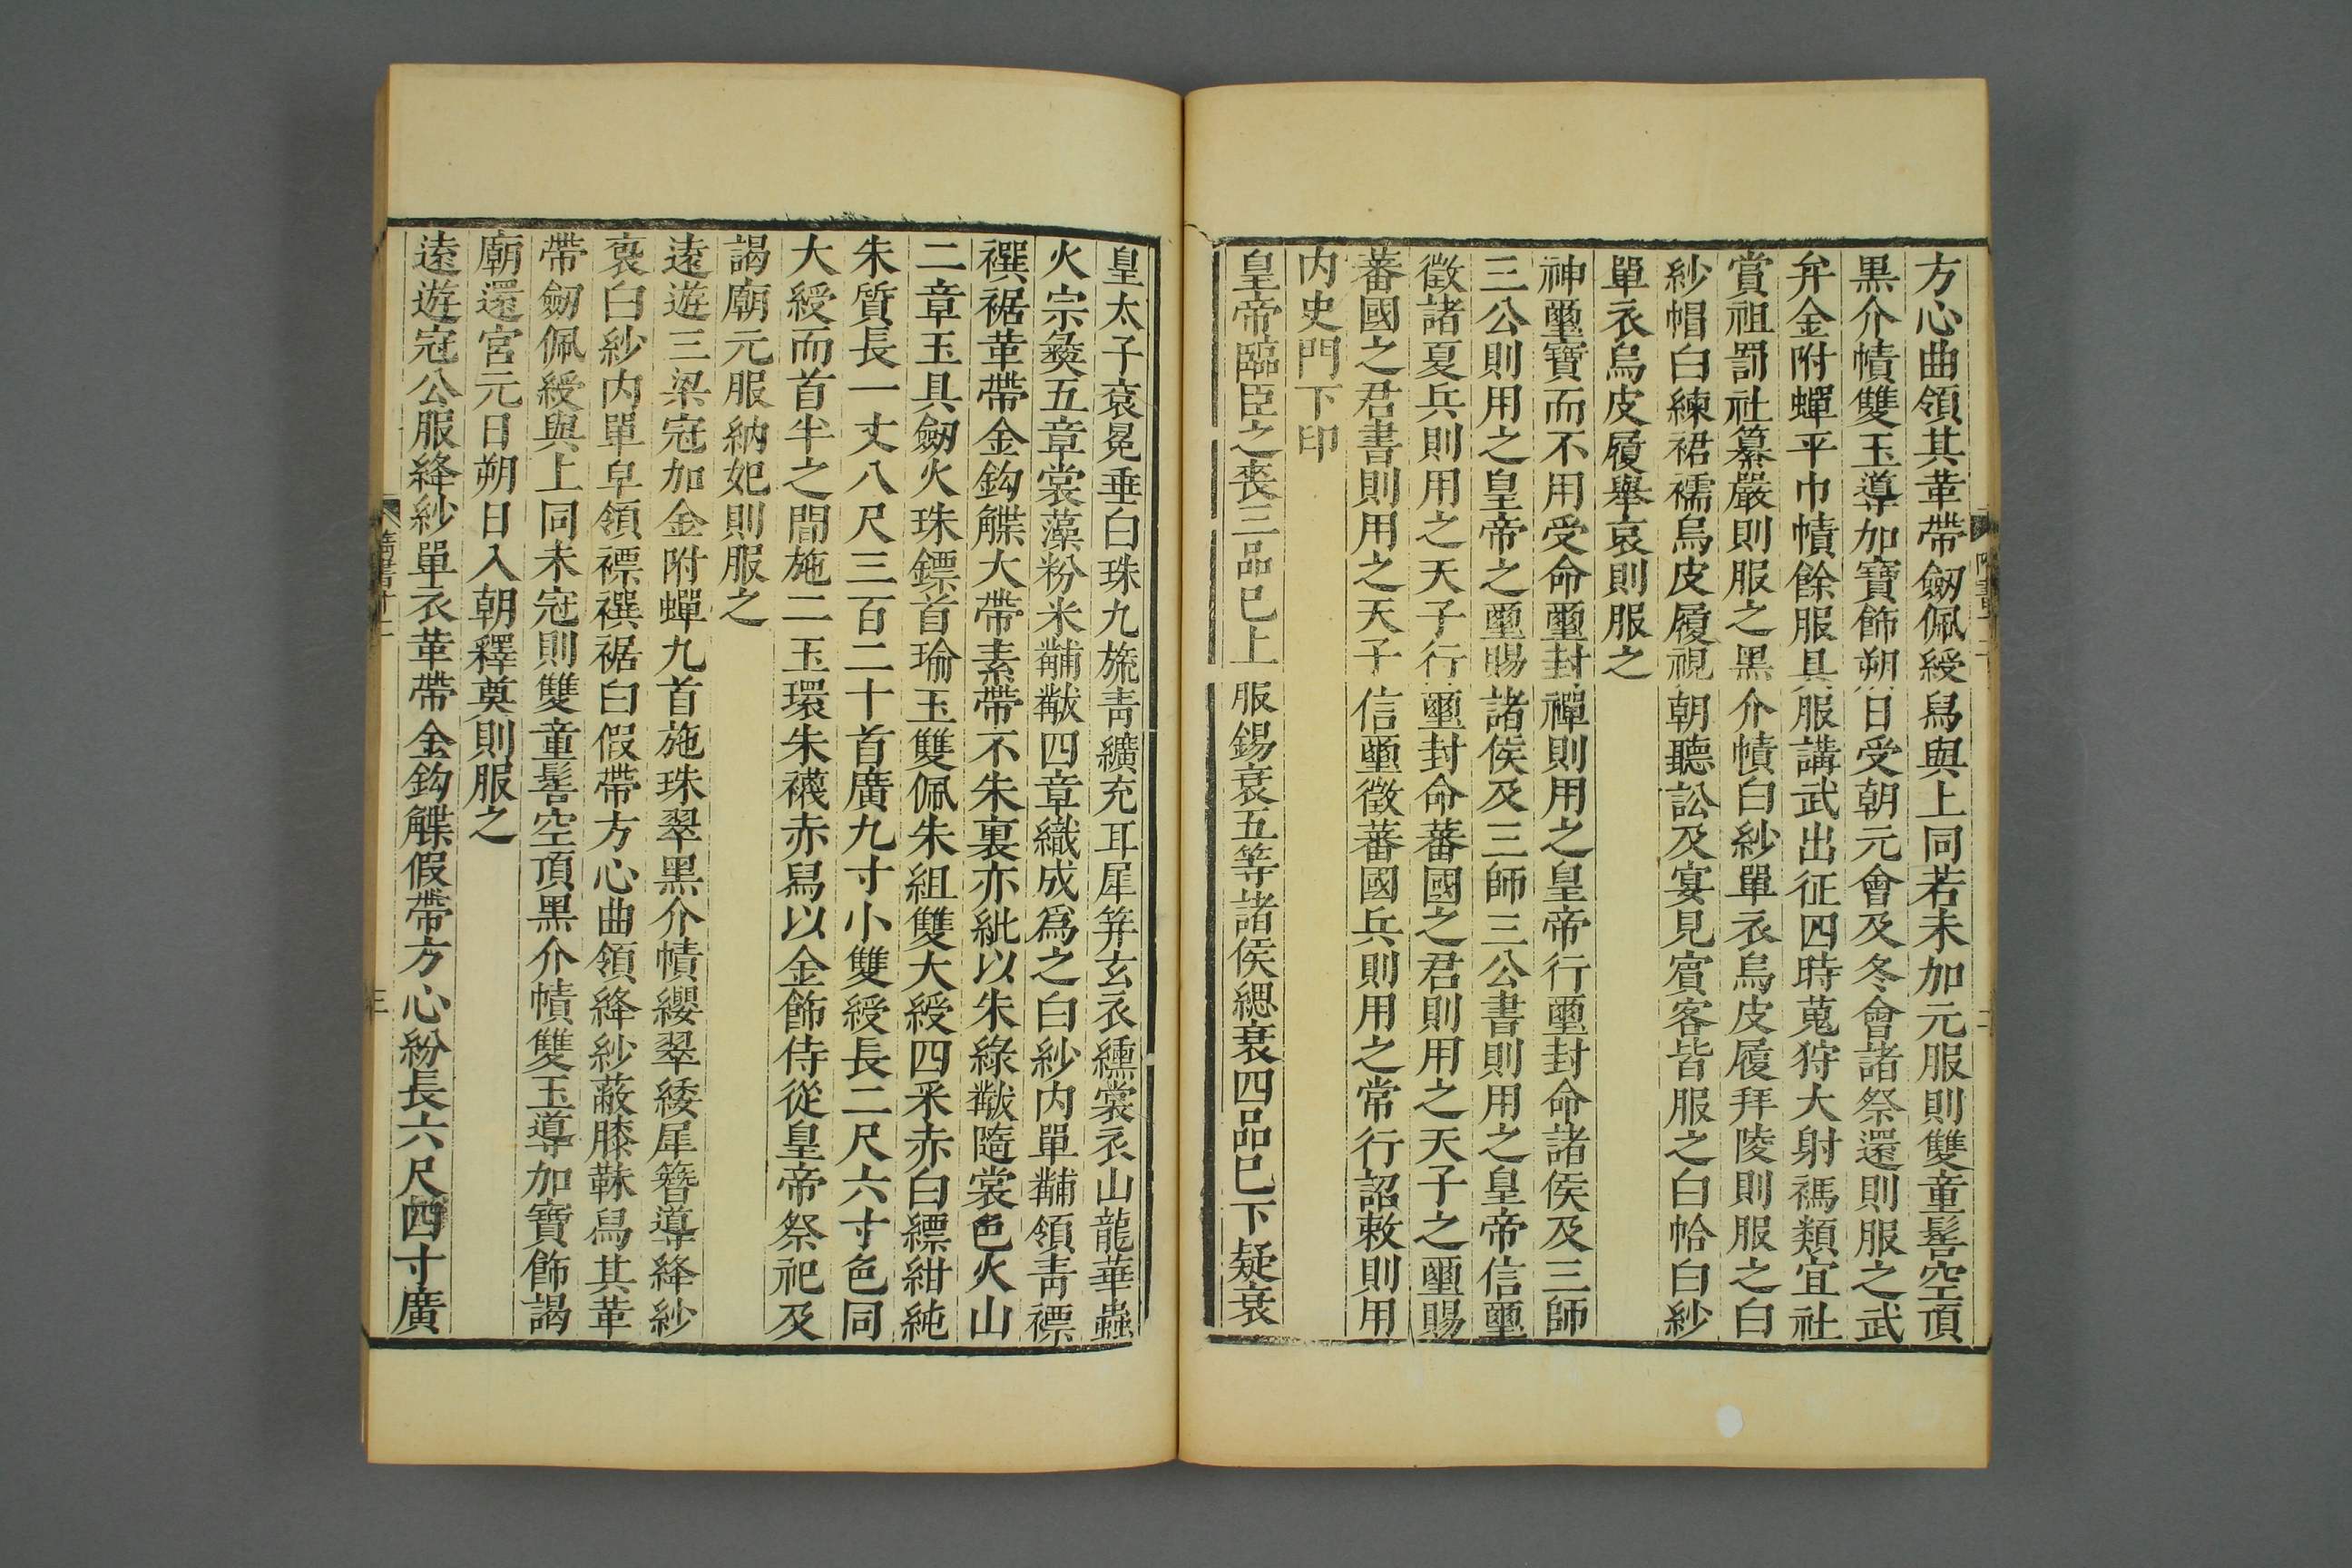 方心曲領其革帶劒佩綬舄與上同若未加元服則雙童髻空頂
黒介幘雙玉導加寶飾朔日受朝元會及冬會諸祭還則服之武
弁金附蟬平巾幘餘服具服講武出征四時蒐狩大射禡類宜社
賞祖罰社纂嚴則服之黑介幘白紗單衣烏皮履拜陵則服之白
紗帽白練裙襦烏皮履視朝聽訟及宴見賓客皆服之白帢白紗
單衣烏皮履舉哀則服之
神璽寶而不用受命璽封禪則用之皇帝行璽封命諸侯及三師
三公則用之皇帝之璽賜諸侯及三師三公書則用之皇帝信璽
徵諸夏兵則用之天子行璽封命蕃國之君則用之天子之璽賜
蕃國之君書則用之天子信璽徵蕃國兵則用之常行詔敕則用
内史門下印
皇帝臨臣之喪三品已上服錫衰五等諸侯緦衰四品已下疑衰
皇太子袞冕垂白珠九旒靑纊充耳犀筓玄衣纁裳衣山龍華蟲
火宗彝五章裳藻粉米黼黻四章織成爲之白紗内單黼領靑褾
襈裾革帶金鈎䚢大帶素帶不朱裏亦紕以朱綠黻隨裳色火山
二章玉具劒火珠鏢首瑜玉雙佩朱組雙大綬四釆赤白縹紺純
朱質長一丈八尺三百二十首廣九寸小雙綬長二尺六寸色同
大綬而首半之間施二玉環朱襪赤舄以金飾侍從皇帝祭祀及
謁廟元服納妃則服之
遠遊三梁冠加金附蟬九首施珠翠黑介幘纓翠緌犀簪導絳紗
袞白紗内單皁領褾襈裾白假帶方心曲領絳紗蔽膝韎舄其革
帶劒佩綬與上同未冠則雙童髻空頂黑介幘雙玉導加寶飾謁
廟還宮元日朔日入朝釋奠則服之
遠遊冠公服絳紗單衣革帶金鈎䚢假帶方心紛長六尺四寸廣